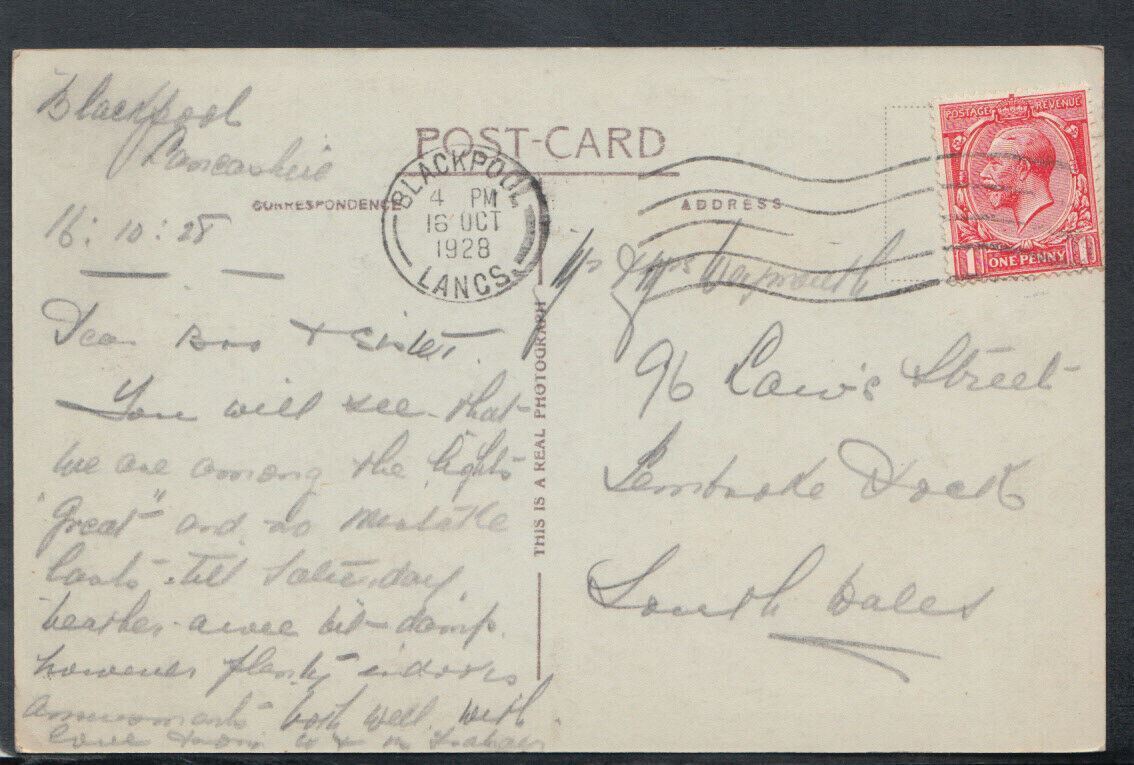 Blackpool
Lancashire
POST-CARD
CORRESPONDENCE
ADDRESS
16: 10: 28
BLACKPOOL
4 PM
16 OCT
1928
LANCS.
POSTAGE REVENUE
1 ONE PENNY 1
THIS IS A REAL PHOTOGRAPH
Dear Bro & Sister.
You will see that
we are among the lights
"Great" and no mistake
lasts till Saturday,
weather a wee bit damp.
however plenty indoors
amusements both well. with
love from
Weymouth
96 Laws Street
Pembroke Dock
South Wales